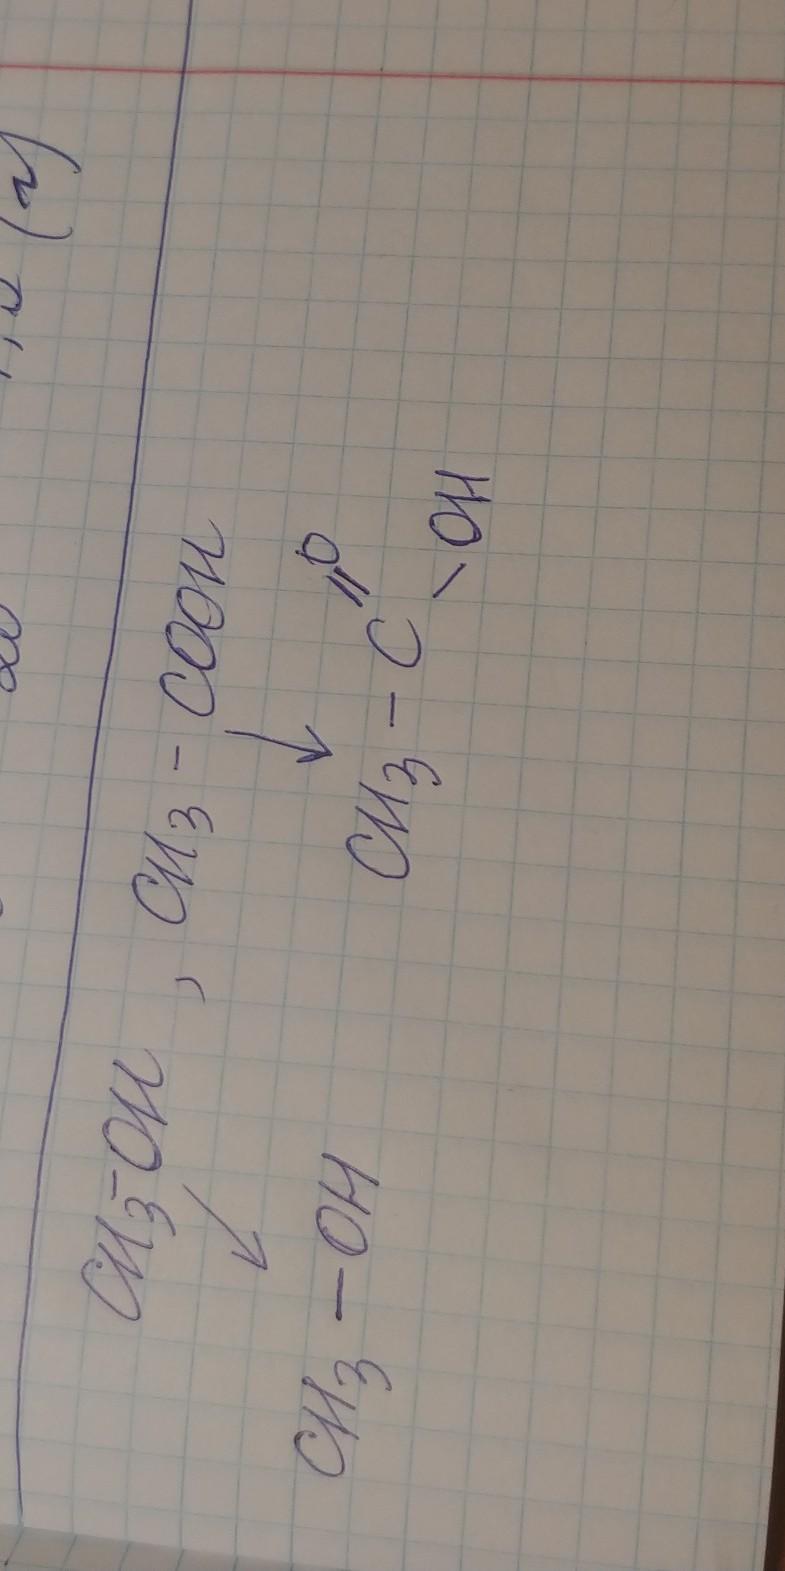 CH3-OH, CH3-COOH
↙ ↓
CH3-OH CH3-C=O
-OH